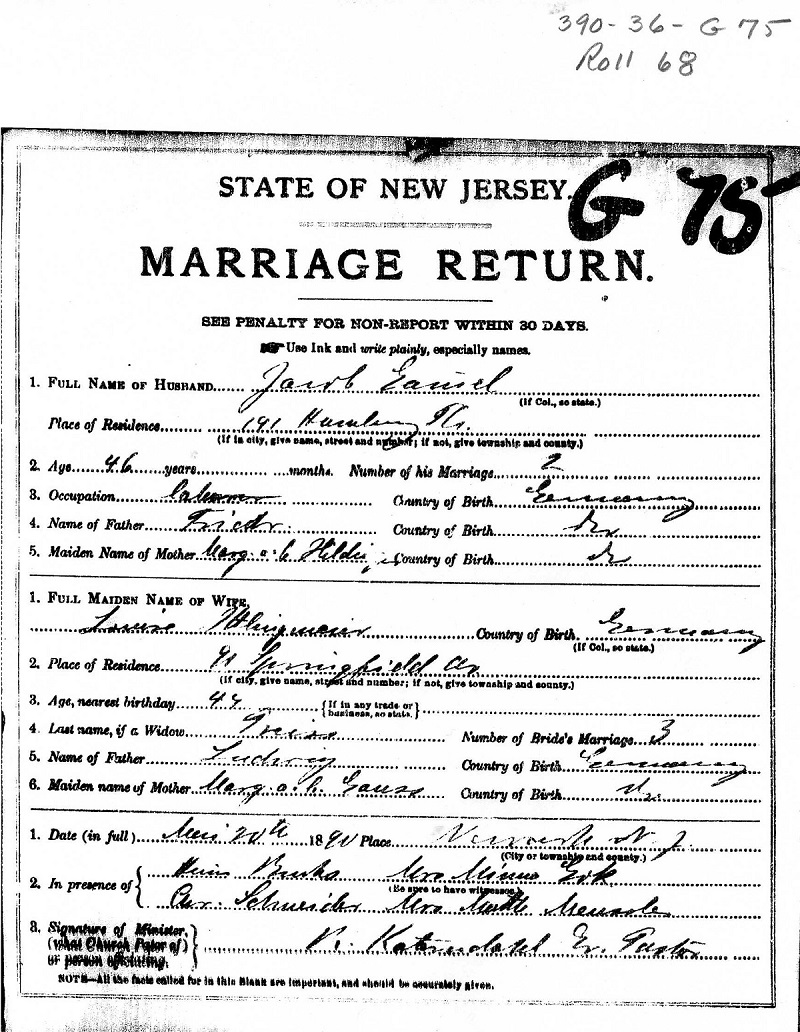 390-36-G 75
Roll 68
G 75
STATE OF NEW JERSEY.
MARRIAGE RETURN.
SEE PENALTY FOR NON-REPORT WITHIN 30 DAYS.
Use Ink and write plainly, especially names.
1. FULL NAME OF HUSBAND...... Jacob
(If Col., so state.)
Place of Residence......... 191 Hamburg Pl.
(If in city, give name, street and number; if not, give township and county.)
2. Age... 46 ...years............ ....months. Number of his Marriage... 2
3. Occupation............ Country of Birth... Germany
4. Name of Father... Friedr. Country of Birth... do
5. Maiden Name of Mother Marg. a. Country of Birth... do
1. FULL MAIDEN NAME OF WIFE,
Louise Country of Birth. Germany
(If Col., so state.)
2. Place of Residence... 91 Springfield Av
(If city, give name, street and number; if not, give township and county.)
3. Age, nearest birthday... {If in any trade or business, so state.}
4. Last name, if a Widow... Number of Bride's Marriage... 3
5. Name of Father... Ludwig Country of Birth... Germany
6. Maiden name of Mother Marg. a. Gauss Country of Birth... do
1. Date (in full)... 20th ...1890 Place Newark N. J.
(City or township and county.)
2. In presence of { Mrs Minna
(Be sure to have witnesses.)
Schneider Mrs
3. Signature of Minister,
(what Church Pator of)
or person officiating. } Pastor
NOTE—All the facts called for in this Blank are important, and should be accurately given.